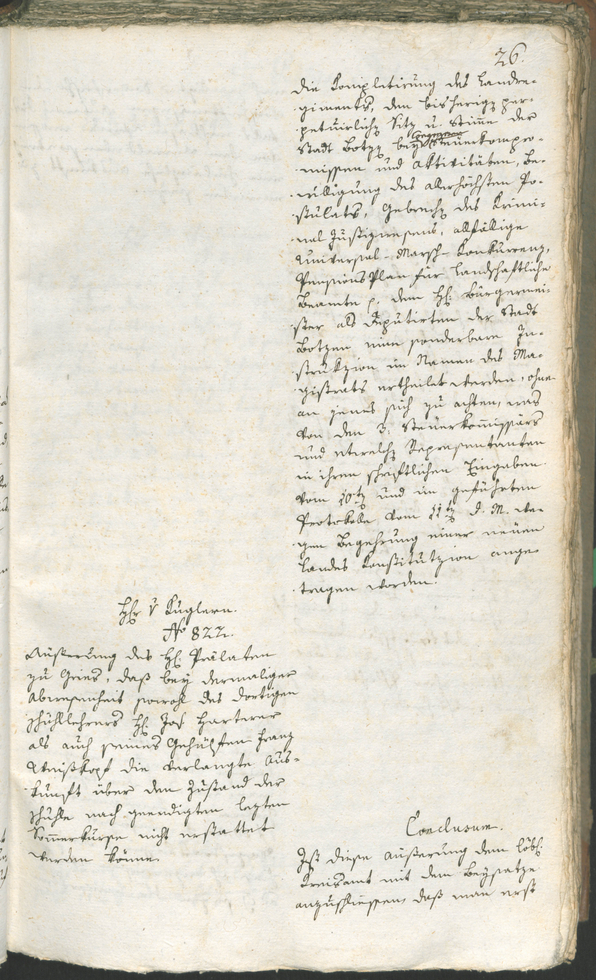 26.
die Completirung des Landre-
giments, den bisherigen per-
petuirlichen Sitz u. Stimme der
Stadt Botzen bey Steuerkompro-
missen und Aktivitäten, Be-
willigung des allerhöchsten Po-
stulats, Gebrechen des Krimi-
nal Justizwesens, allfällige
Universal-Marsch-Konkurrenz,
Pensions Plan für Landschaftliche
Beamte p. dem H. Bürgermei-
ster als Deputirten der Stadt
Botzen eine sonderbare In-
strukzion im Namen des Ma-
gistrats ertheilet werden, ohne
an jenes sich zu achten, was
von den Steuerkommissärs
und Representanten
in ihren schriftlichen Eingaben
vom 10ten und im geführten
Protokolle vom 11ten d. M. we-
gen Begehrung einer neuen
Landes Konstitutzion ange-
tragen worden.
Hr. v. Kuglern.
No 822.
Äußerung des H. Prälaten
zu Gries, daß bey dermaliger
Abwesenheit sowohl des dortigen
Schullehrers H. Jos. Harterer
als auch seines Gehülfen Franz
Weißkopf die verlangte Aus-
kunft über den Zustand der
Schule nach geendigten letzten
Sommerkurse nicht erstattet
werden könne.
Conclusum.
Ist diese Äußerung dem löbl.
Kreisamt mit dem Beysatze
anzuschliessen, daß man erst